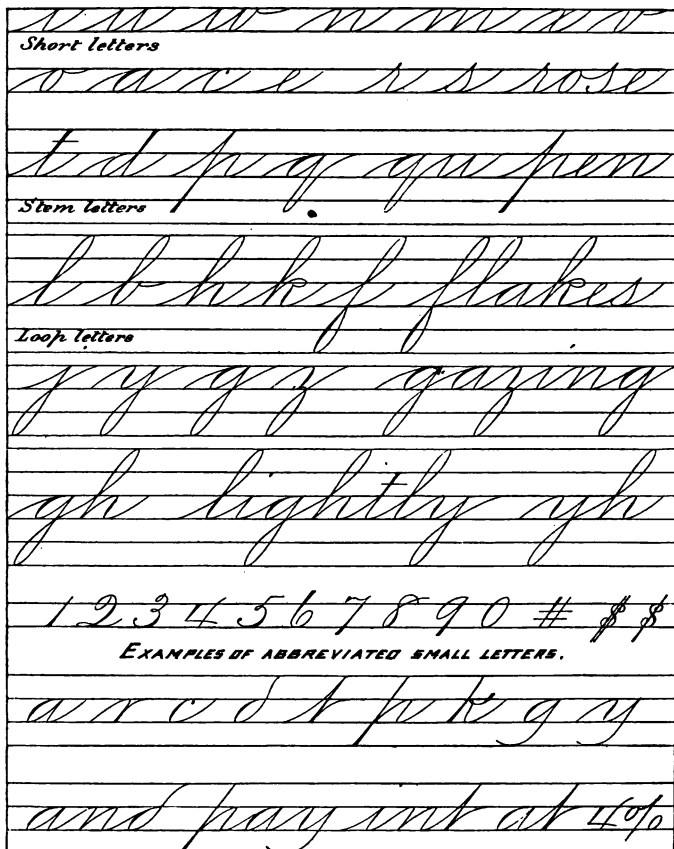 i u w n m x v
Short letters
o a c e r s rose
t d p q qu pen
Stem letters
l b h k f flakes
Loop letters
j y g z gazing
gh lightly yh
1 2 3 4 5 6 7 8 9 0 # $ $
EXAMPLES OF ABBREVIATED SMALL LETTERS.
a r c d t p k g y
and pay int at 4%